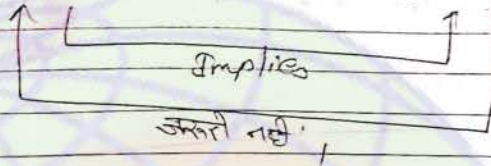 Implies
जरूरी नहीं